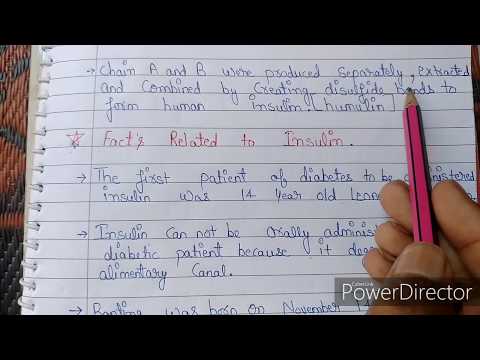 → Chain A and B were produced separately, extracted
and Combined by Creating disulfide bonds to
form human insulin. [humulin]
☆ Fact's Related to Insulin.
→ The first patient of diabetes to be
insulin was 14 year old
→ Insulin Can not be orally
diabetic patient because it
alimentary Canal.
→ Banting was born on November
CyberLink
PowerDirector